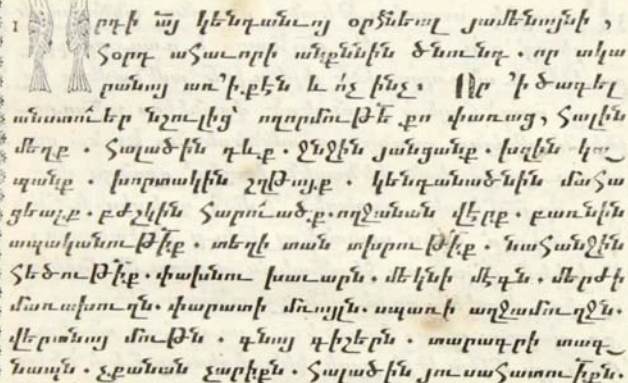 1 Որդի ա՟յ կենդանւոյ օրհնեալ յամենայնի,
Հօրդ ահաւորի անքննին ծնունդ. որ տկա
րանայ առ՚ի քէն և ո՛չ ինչ։ Որ ՚ի ծագել
անստուեր նշուլից՝ ողորմութե՟ քո փառաց, հալին
մեղք. հալածին դևք. ջնջին յանցանք. խզին կա֊
պանք. խորտակին շղթայք. կենդանածնին մահա
ցեալք. բժշկին հարուածք. ողջանան վէրք. բառնին
ապականութի՟ք. տեղի տան տխրութի՟ք. նահանջին
հեծութի՟ք. փախնու խաւարն. մեկնի մէգն. մերժի
մառախուղն. փարատի մռայլն. սպառի աղջամուղջն.
վերանայ մութն. գնայ գիշերն. տարագրի տագ֊
նապն. չքանան չարիքն. հալածին յուսահատուի՟քն.